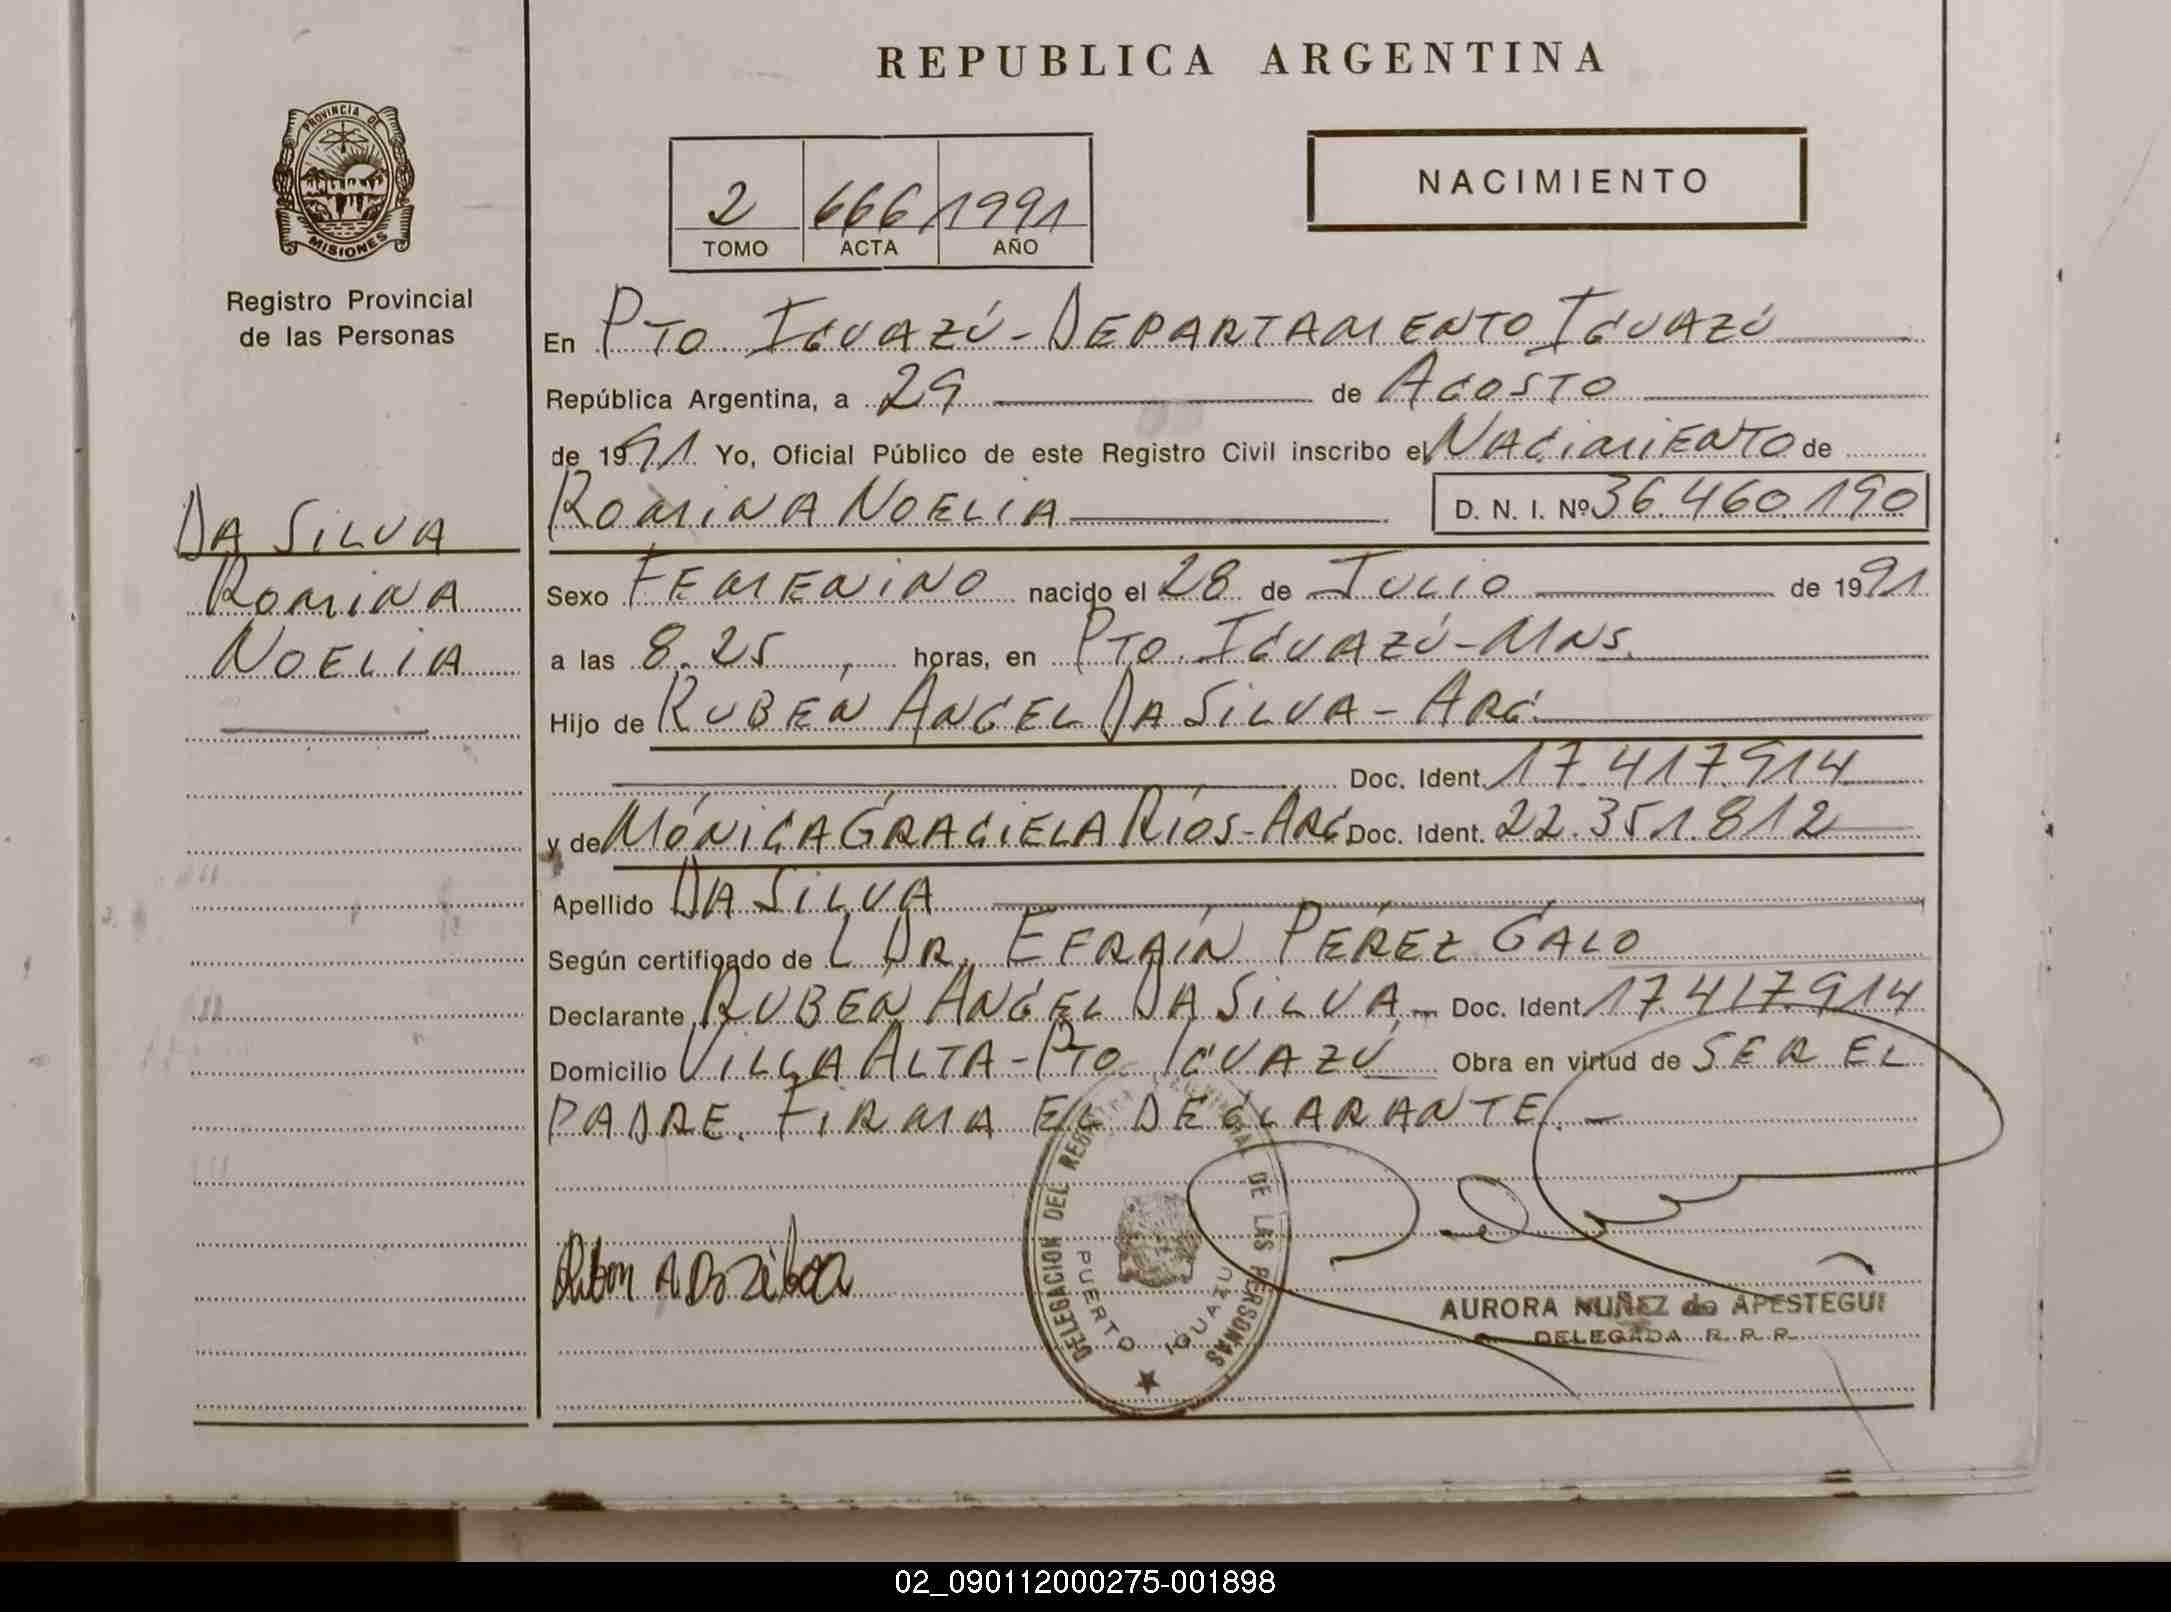 REPUBLICA ARGENTINA
PROVINCIA DE
MISIONES
Registro Provincial
de las Personas
2 666 1991
TOMO ACTA AÑO
NACIMIENTO
En PTO IGUAZÚ - DEPARTAMENTO IGUAZÚ
República Argentina, a 29 de AGOSTO
de 1991 Yo, Oficial Público de este Registro Civil inscribo el NACIMIENTO de
ROMINA NOELIA D. N. I. Nº 36.460.190
DA SILVA
ROMINA
NOELIA
Sexo FEMENINO nacido el 28 de JULIO de 1991
a las 8.25 horas, en PTO. IGUAZÚ - MNS.
Hijo de RUBÉN ÁNGEL DA SILVA - ARG.
Doc. Ident. 17.417.914
y de MÓNICA GRACIELA RÍOS - ARG Doc. Ident. 22.351.812
Apellido DA SILVA
Según certificado de L DR. EFRAÍN PÉREZ GALO
Declarante RUBÉN ÁNGEL DA SILVA - Doc. Ident 17.417.914
Domicilio VILLA ALTA - PTO IGUAZÚ Obra en virtud de SER EL
PADRE. FIRMA EL DECLARANTE. -
DELEGACION DEL REGISTRO PROVINCIAL DE LAS PERSONAS
PUERTO IGUAZU
AURORA NUÑEZ de APESTEGUI
DELEGADA R. P. P.
02_090112000275-001898